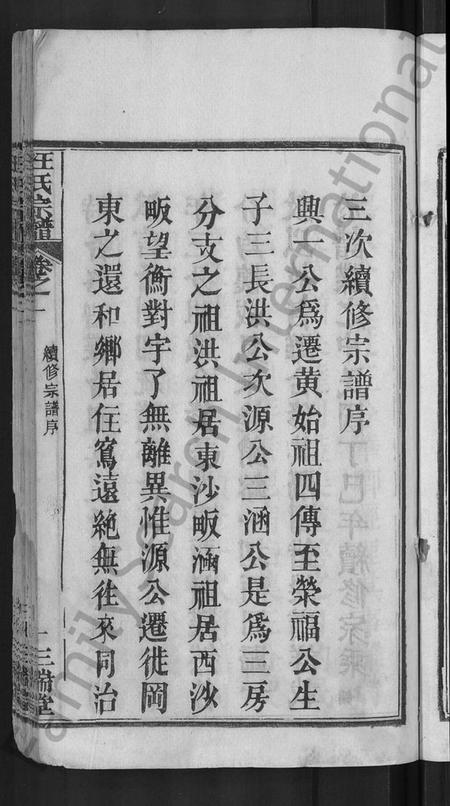 三次續修宗譜序
興一公爲遷黃始祖四傳至榮福公生
子三長洪公次源公三涵公是爲三房
分支之祖洪祖居東沙畈涵祖居西沙
畈望衡對宇了無離異惟源公遷徙岡
東之還和鄉居住寫遠絶無往來同治
汪氏宗譜
卷之一
續修宗譜序
一
三
堂
丁巳年續修宗乘
FamilySearch International